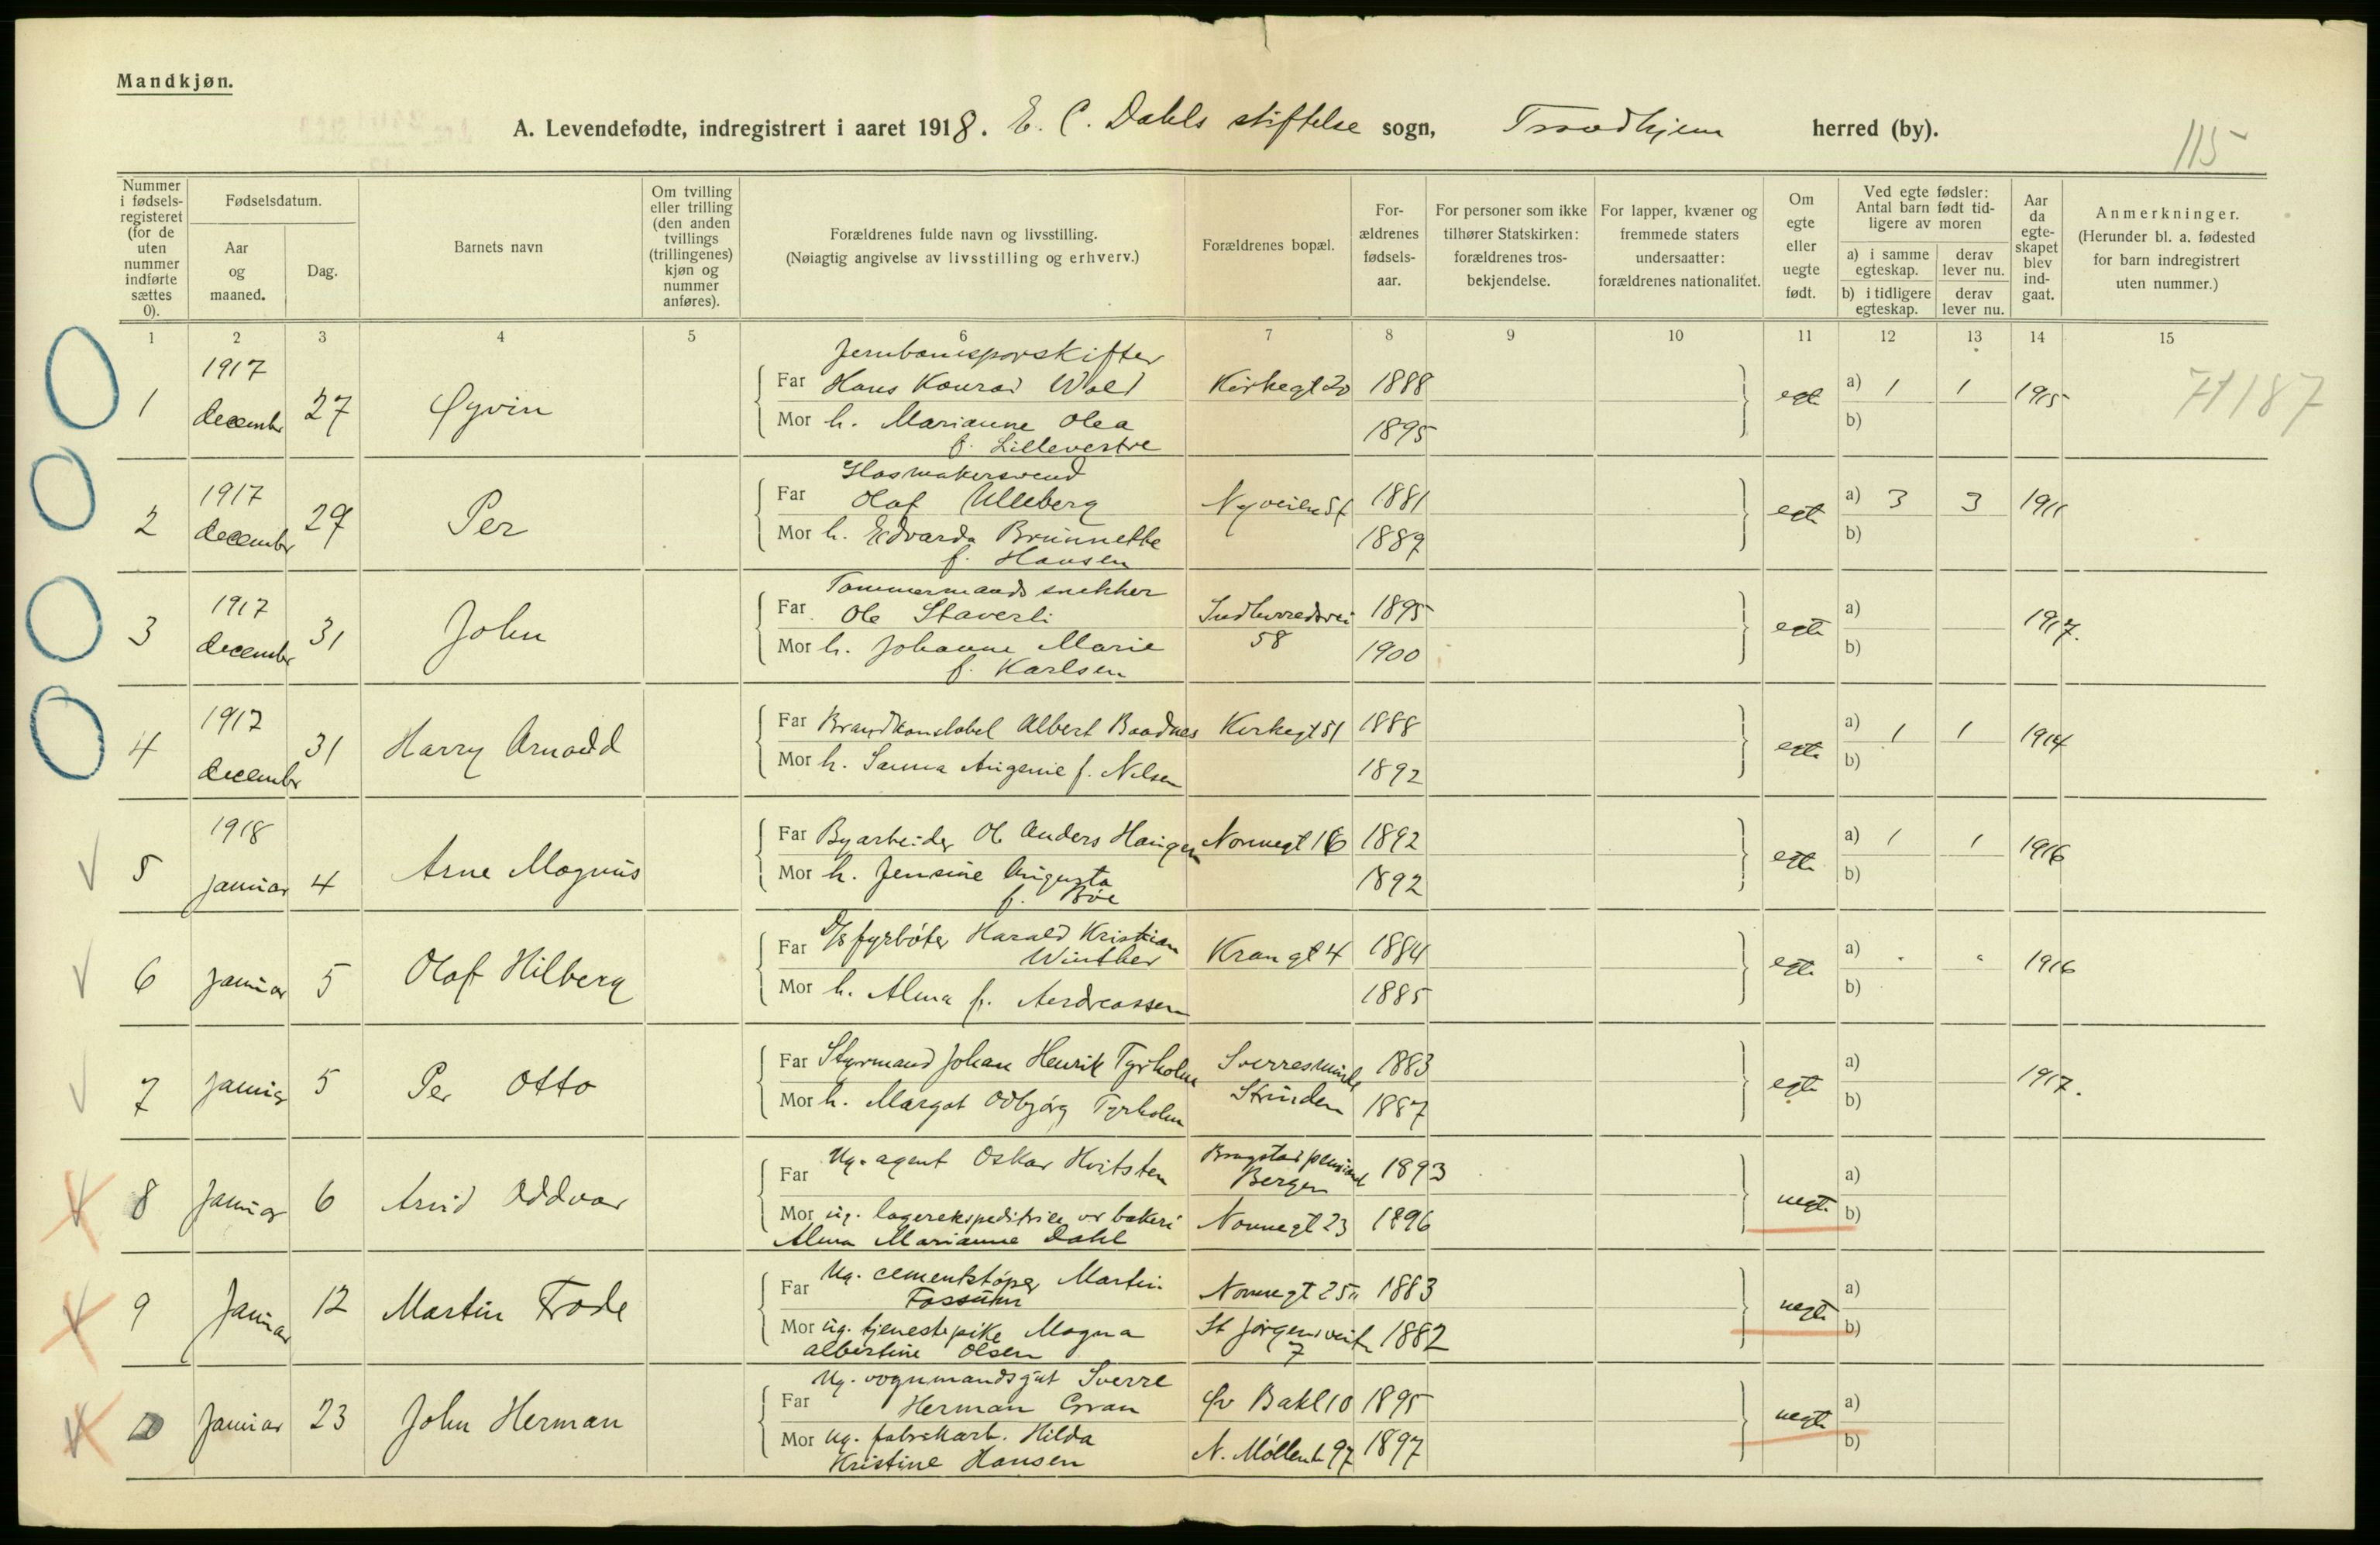 Mandkjøn.
A. Levendefødte, indregistrert i aaret 1918. E. C. Dahls stiftelse sogn, Trondhjem herred (by).
115
Nummer i fødselsregisteret (for de uten nummer indførte sættes 0).
Fødselsdatum.
Aar og maaned.
Dag.
Barnets navn
Om tvilling eller trilling (den anden tvillings (trillingenes) kjøn og nummer anføres).
Forældrenes fulde navn og livsstilling.
(Nøiagtig angivelse av livsstilling og erhverv.)
Forældrenes bopæl.
Forældrenes fødselsaar.
For personer som ikke tilhører Statskirken: forældrenes trosbekjendelse.
For lapper, kvæner og fremmede staters undersaatter: forældrenes nationalitet.
Om egte eller uegte født.
Ved egte fødsler: Antal barn født tidligere av moren
a) i samme egteskap. derav lever nu.
b) i tidligere egteskap. derav lever nu.
Aar da egteskapet blev indgaat.
Anmerkninger.
(Herunder bl. a. fødested for barn indregistrert uten nummer.)
1 2 3 4 5 6 7 8 9 10 11 12 13 14 15
Jernbanesporskifter
1 1917 december 27 Øyvin Far Hans Konrad Wold Kirkegt 20 1888 egte a) 1 1 1915 71187
Mor h. Marianne Olea 1895 b)
f. Lillevestre
Glasmakersvend
2 1917 december 29 Per Far Olaf Ulleberg Nyveien 1881 egte a) 3 3 1911
Mor h. Edvarda Brünnette 1889 b)
f. Hansen
Tømmermands snekker
3 1917 december 31 John Far Ole Staverli Indherredsvei 58 1895 egte a) 1917.
Mor h. Johanne Marie 1900 b)
f. Karlsen
4 1917 december 31 Harry Arnold Far Brandkonstabel Albert Baadnes Kirkegt 51 1888 egte a) 1 1 1914
Mor h. Sanna Augenie f. Nilsen 1892 b)
5 1918 januar 4 Arne Magnus Far Byarbeider Ole Anders Haugen Nonnegt 16 1892 egte a) 1 1 1916
Mor h. Jensine Augusta 1892 b)
f. Bøe
6 januar 5 Olaf Hilberg Far D/s fyrbøter Harald Kristian Winther Krangt 4 1884 egte a) 1916
Mor h. Alma f. Andreassen 1885 b)
7 januar 5 Per Otto Far Styrmand Johan Henrik Tyrholm Sverresminde Strinden 1883 egte a) 1917.
Mor h. Margot Odbjørg Tyrholm 1887 b)
8 Januar 6 Arvid Oddvar Far Ug. agent Oskar Hvitsten Bergen 1893 uegte a)
Mor ug. lagerekspeditrice v bakeri Nonnegt 23 1896 b)
Alma Marianne Dahl
9 Januar 12 Martin Frode Far Ug. cementstøper Martin Fossum Nonnegt 25 1883 uegte a)
Mor ug. tjenestepike Magna St Jørgensveit 7 1882 b)
Albertine Olsen
10 Januar 23 John Herman Far Ug. vognmandsgut Sverre Herman Gran Øv Bakl 10 1895 uegte a)
Mor ug. fabrikarb. Hilda N. Møllenb 97 1897 b)
Kristine Hansen